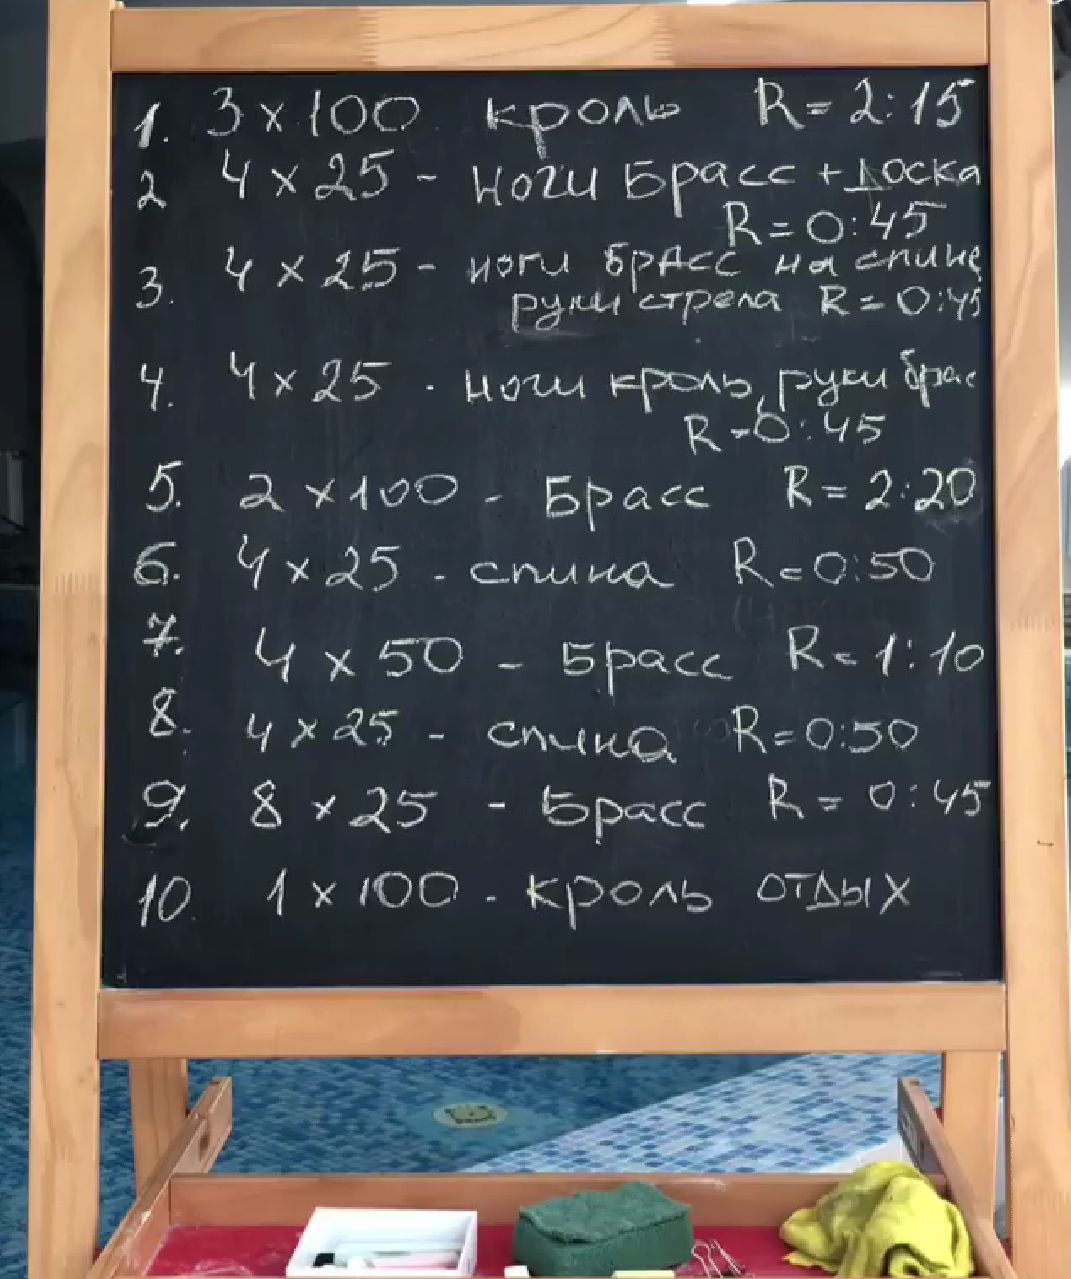 1. 3 x 100 кроль R = 2:15
2 4 x 25 - ноги Брасс + Доска
R = 0:45
3. 4 x 25 - ноги брасс на спине
руки стрела R = 0:45
4. 4 x 25 - ноги кроль, руки брас
R = 0:45
5. 2 x 100 - Брасс R = 2:20
6. 4 x 25 - спина R = 0:50
7. 4 x 50 - Брасс R = 1:10
8. 4 x 25 - спина R = 0:50
9. 8 x 25 - Брасс R = 0:45
10. 1 x 100 - кроль отдых